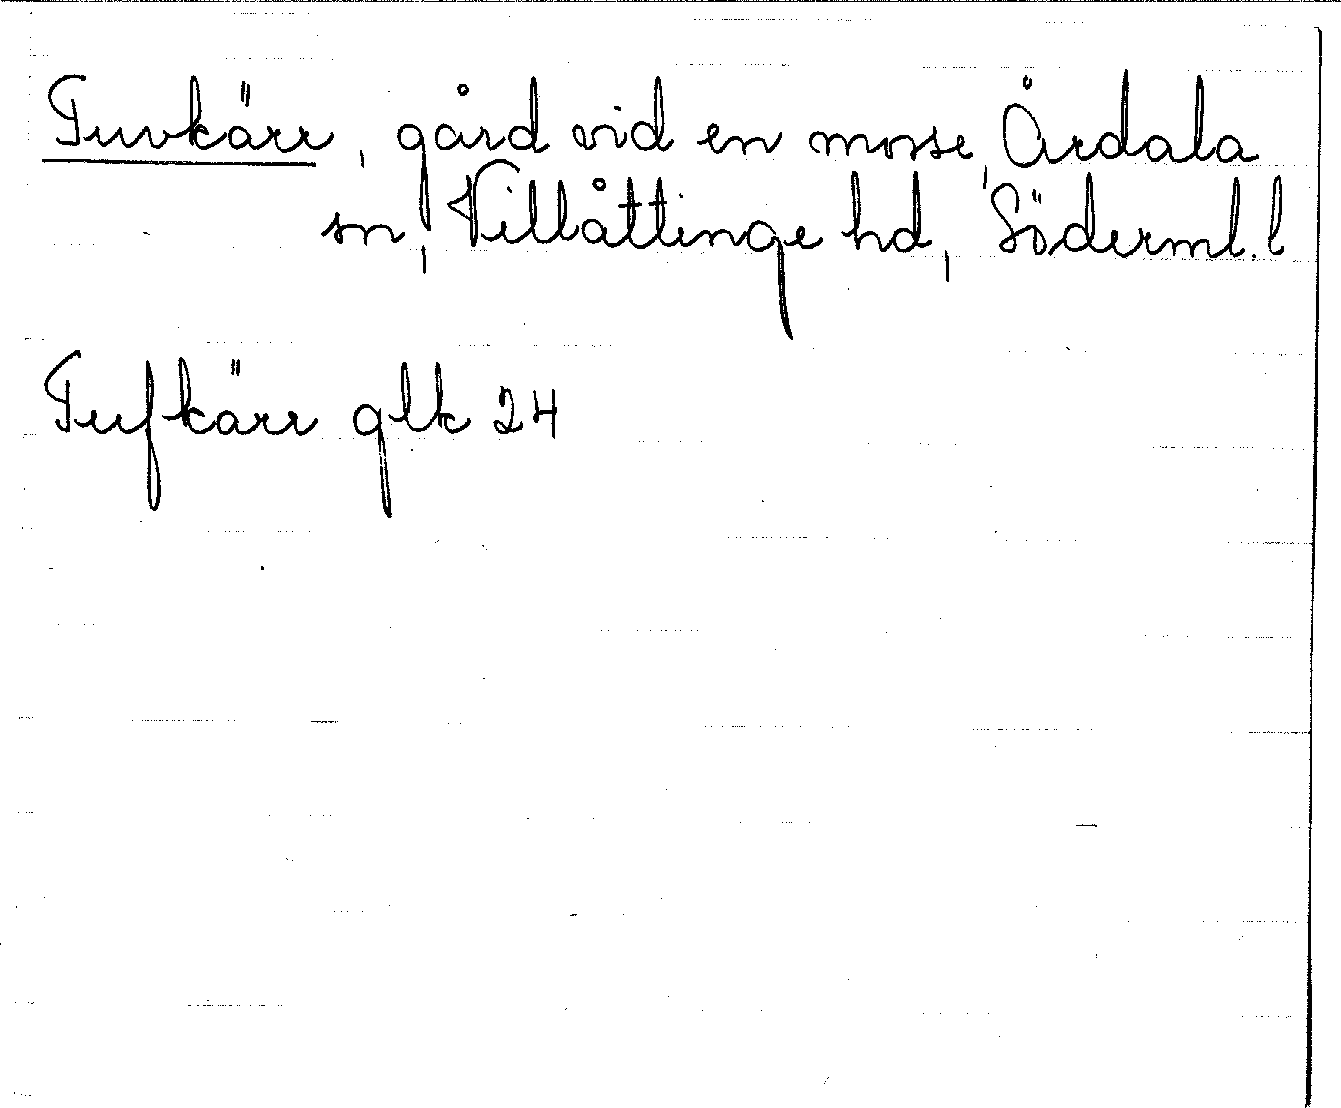 Tuvkärr, gård vid en mosse, Årdala
sn, Villåttinge hd, Söderml. l
Tufkärr glk 24